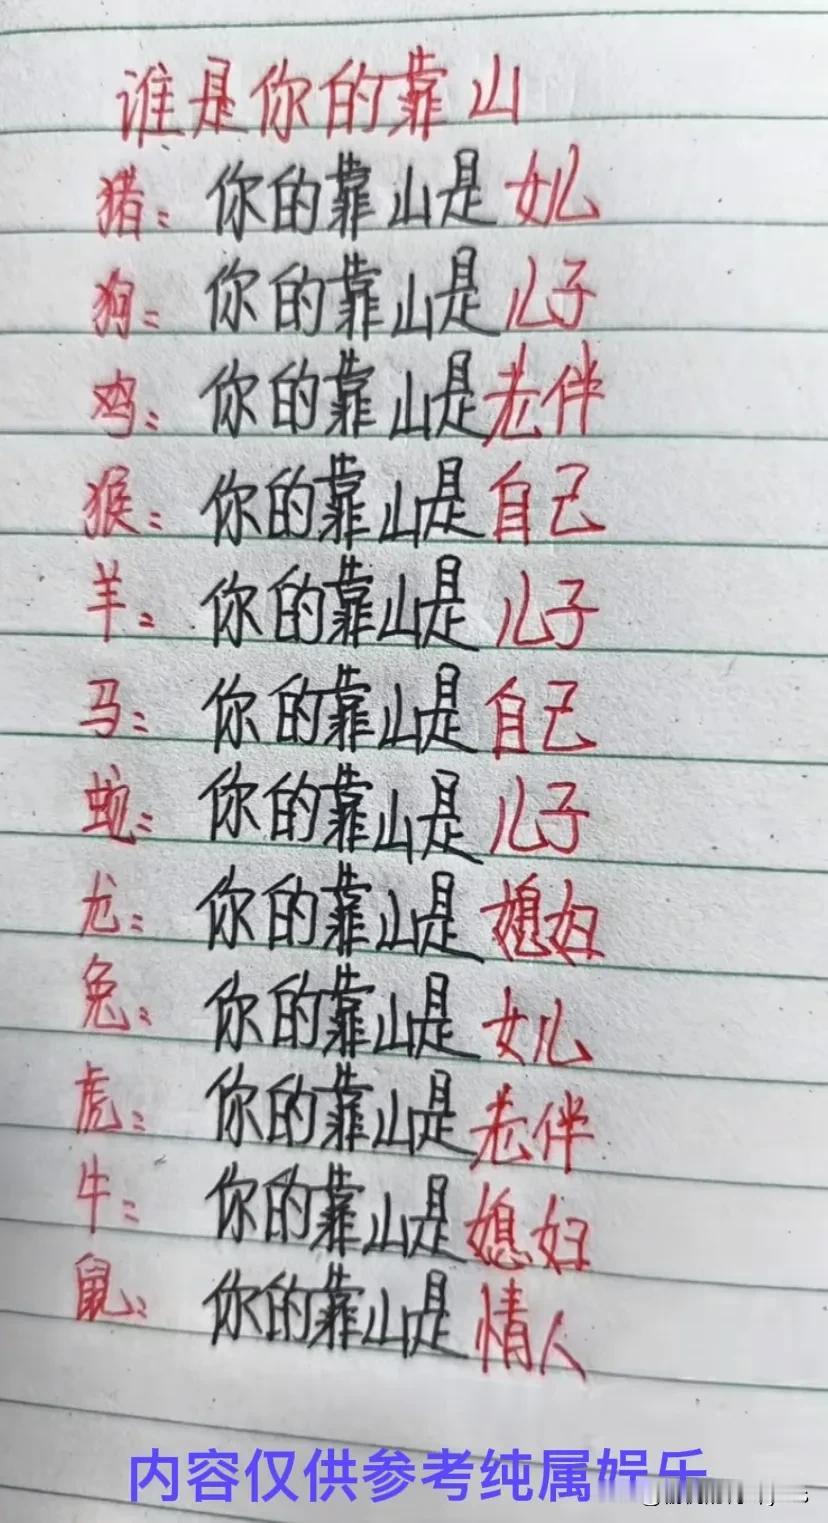 谁是你的靠山
猪：你的靠山是女儿
狗：你的靠山是儿子
鸡：你的靠山是老伴
猴：你的靠山是自己
羊：你的靠山是儿子
马：你的靠山是自己
蛇：你的靠山是儿子
龙：你的靠山是媳妇
兔：你的靠山是女儿
虎：你的靠山是老伴
牛：你的靠山是媳妇
鼠：你的靠山是情人
内容仅供参考纯属娱乐